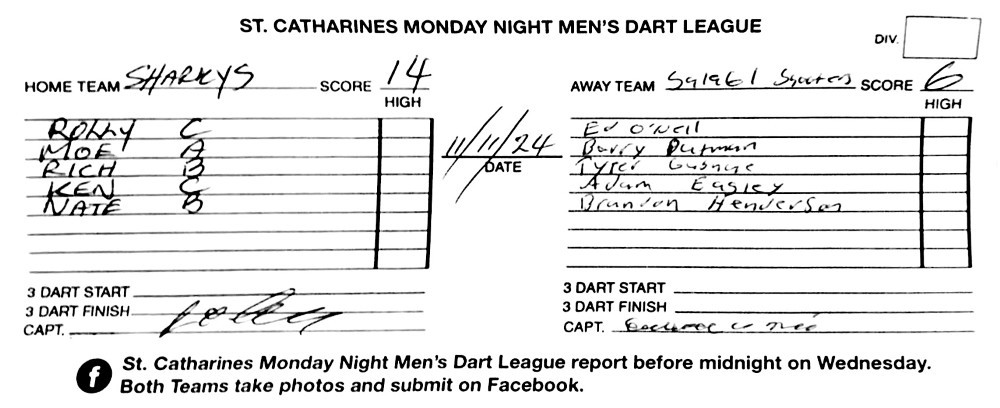 ST. CATHARINES MONDAY NIGHT MEN'S DART LEAGUE
DIV.
HOME TEAM SHARKYS SCORE 14
HIGH
ROLLY C
MOE A
RICH B
KEN C
NATE B
11/11/24
DATE
AWAY TEAM SCORE 6
HIGH
Ed O'Neil
Barry Putman
Tyler
Adam Easley
Brandon Henderson
3 DART START
3 DART FINISH
CAPT.
3 DART START
3 DART FINISH
CAPT.
f St. Catharines Monday Night Men's Dart League report before midnight on Wednesday.
Both Teams take photos and submit on Facebook.